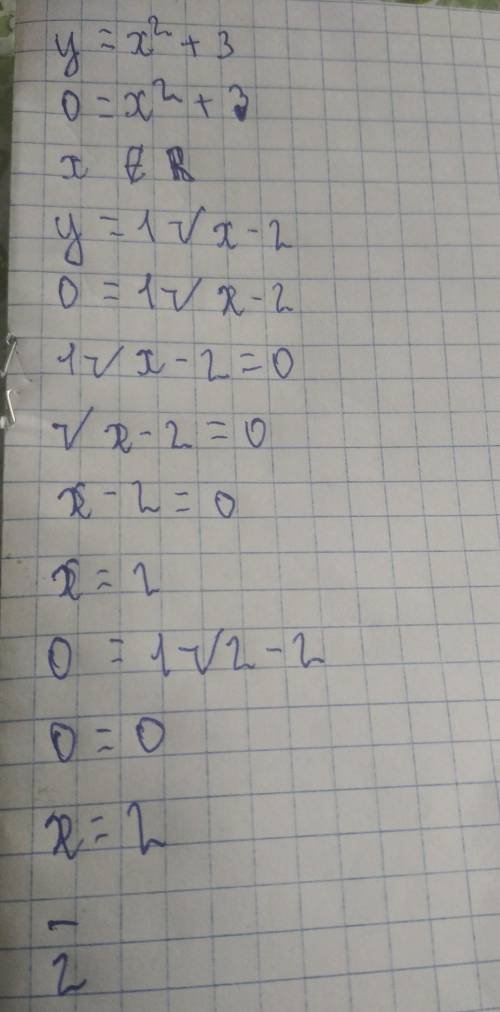 y = x² + 3
0 = x² + 3
x ∉ R
y = 1√x - 2
0 = 1√x - 2
1√x - 2 = 0
√x - 2 = 0
x - 2 = 0
x = 2
0 = 1√2 - 2
0 = 0
x = 2
–
2